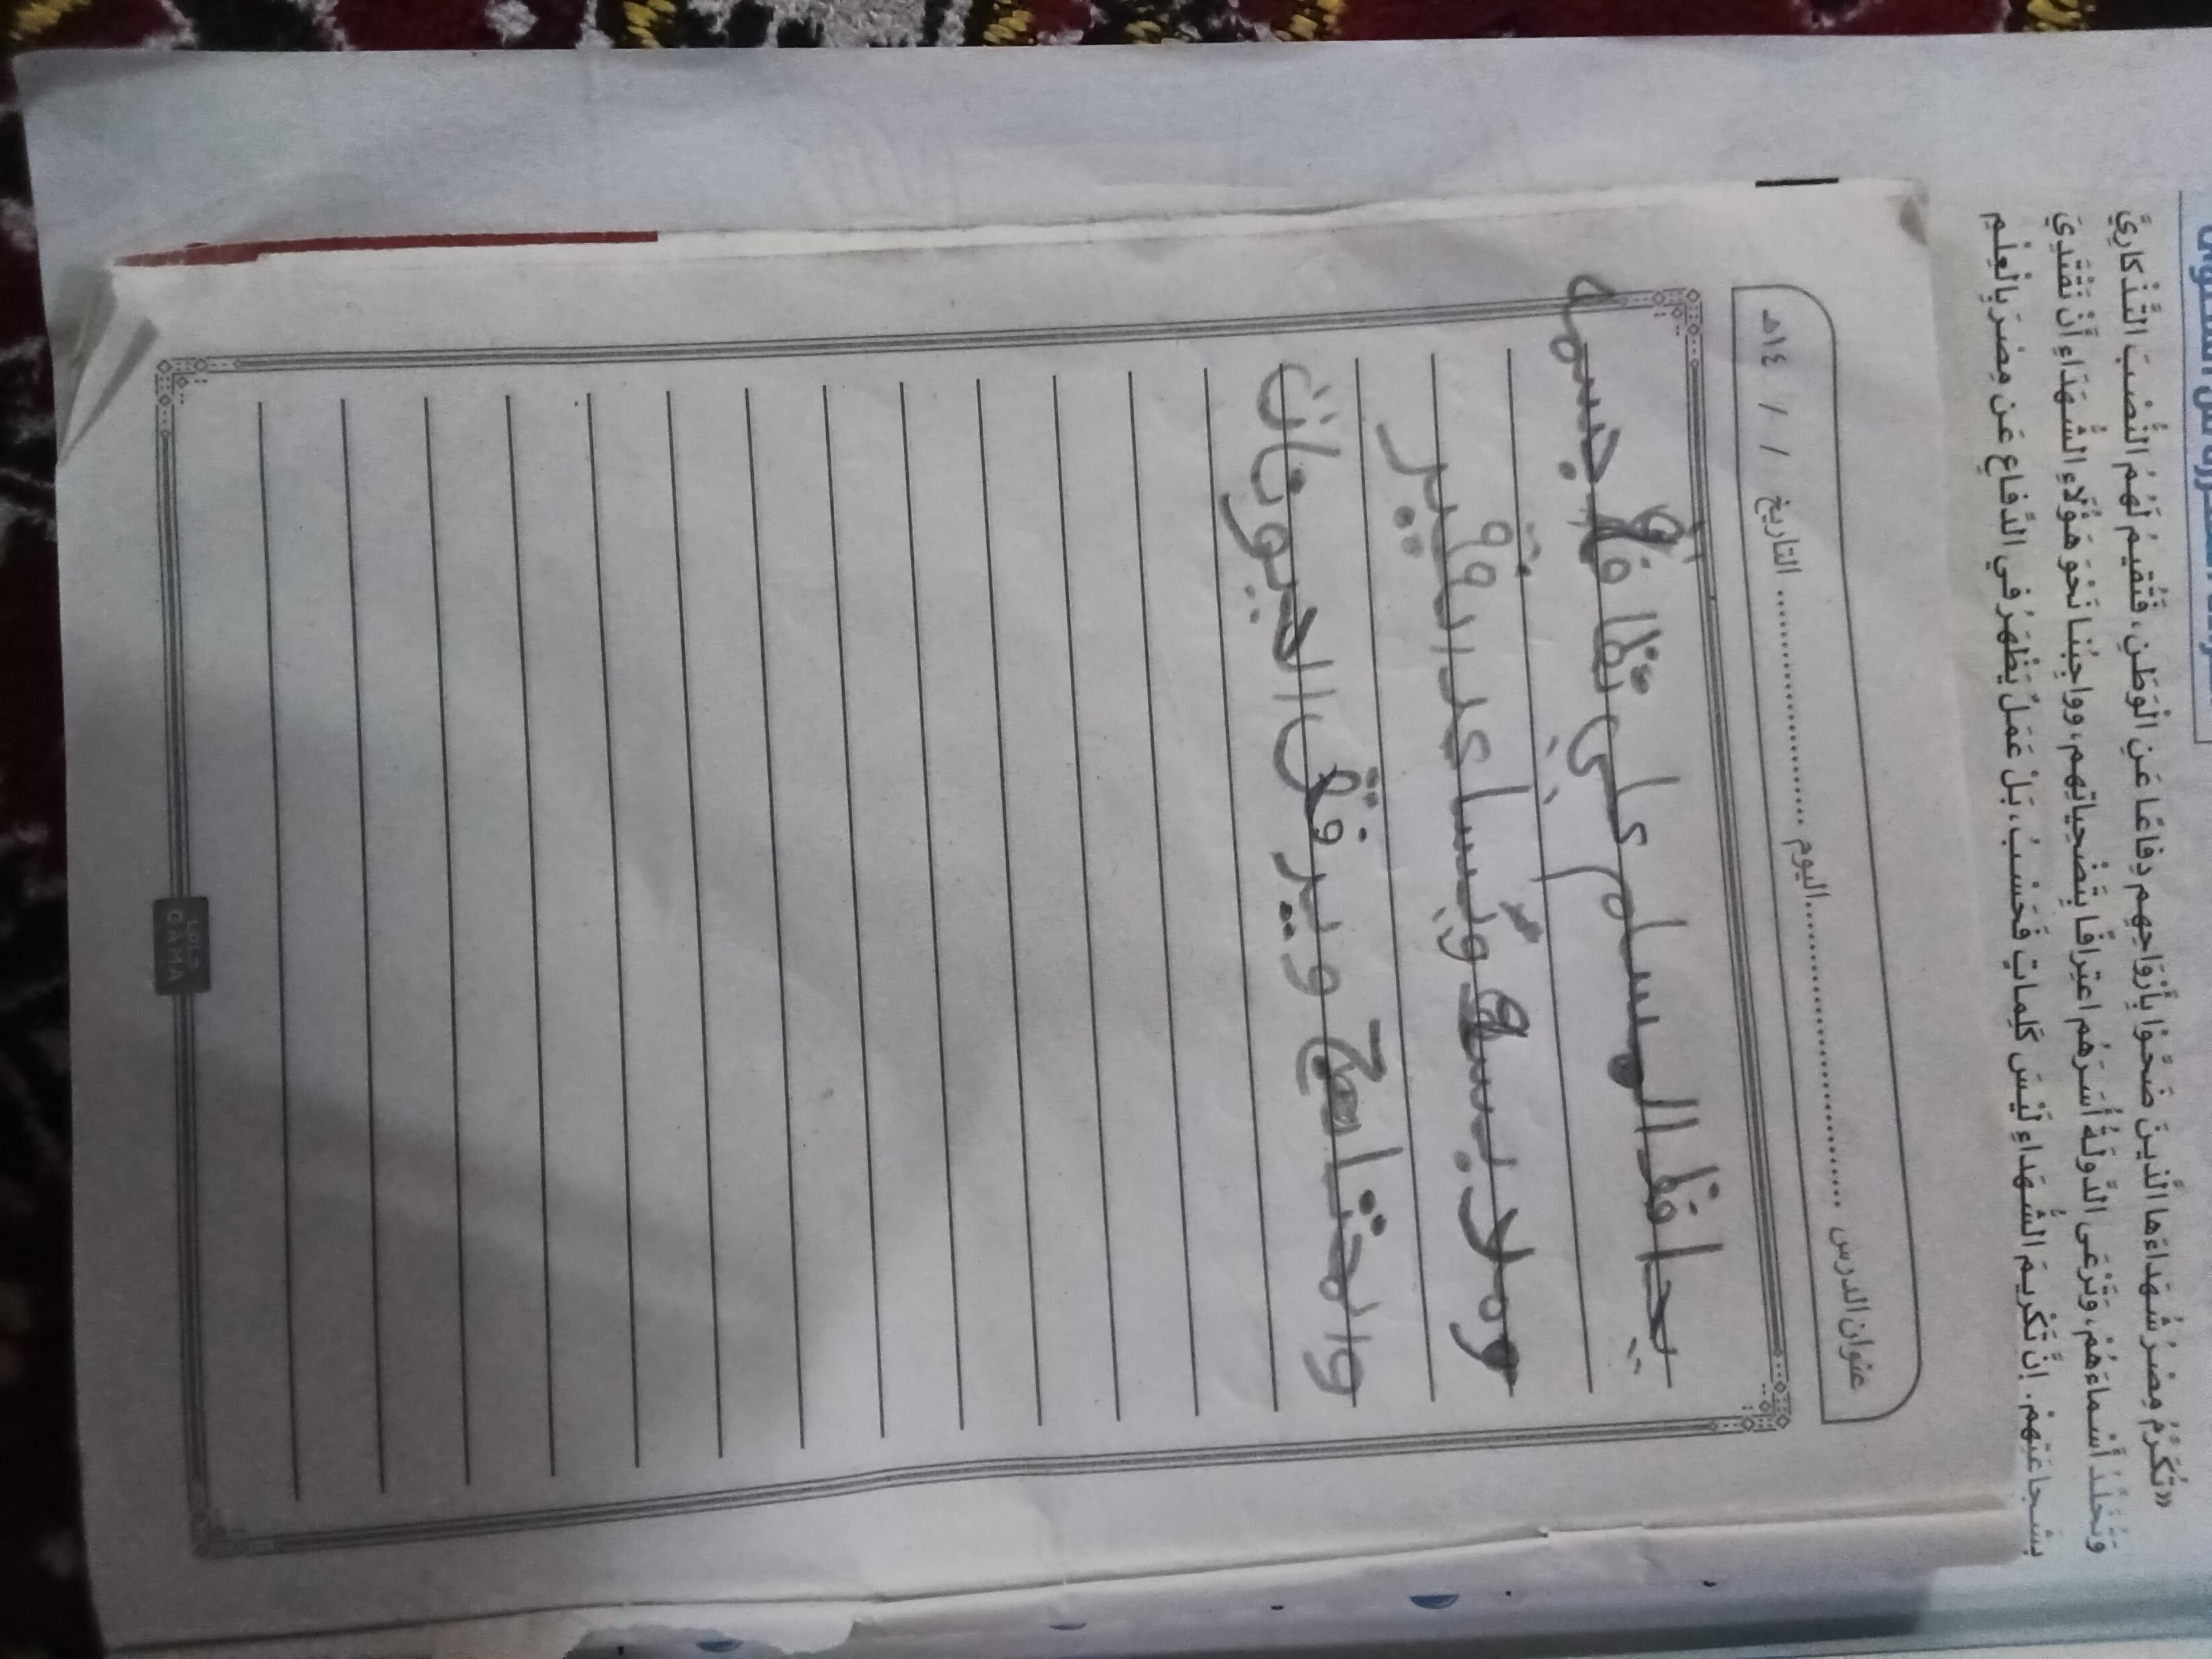 «تُكَرِّمُ مِصْرُ شُهَدَاءَها الَّذِينَ ضَحَّوْا بِأَرْوَاحِهِم دِفاعًا عَنِ الْوَطَنِ، فَتُقِيمُ لَهُمُ النُّصُبَ التَّذْكارِيَّ
وَتُخَلِّدُ أَسْماءَهُمْ، وَتَرْعَى الدَّولَةُ أُسَرَهُم اعتِرافًا بِتَضْحِياتِهِم، وواجِبُنا نَحْوَ هَؤُلَاءِ الشُّهَدَاءِ أَنْ نَقْتَدِيَ
بِشَجاعَتِهِمْ. إِنَّ تَكْرِيمَ الشُّهَداءِ لَيْسَ كَلِماتٍ فَحَسْبُ، بَلْ عَمَلٌ يَظْهَرُ في الدِّفاعِ عَن مِصْرَ بِالْعِلْمِ
عنوان الدرس .................... اليوم .................... التاريخ / / ١٤هـ
يحافظ المسلم علي نظافة جسمه
وملابسه ويساعد الفقير
والمحتاج ويرفق الحيونات
جاما
GAMA